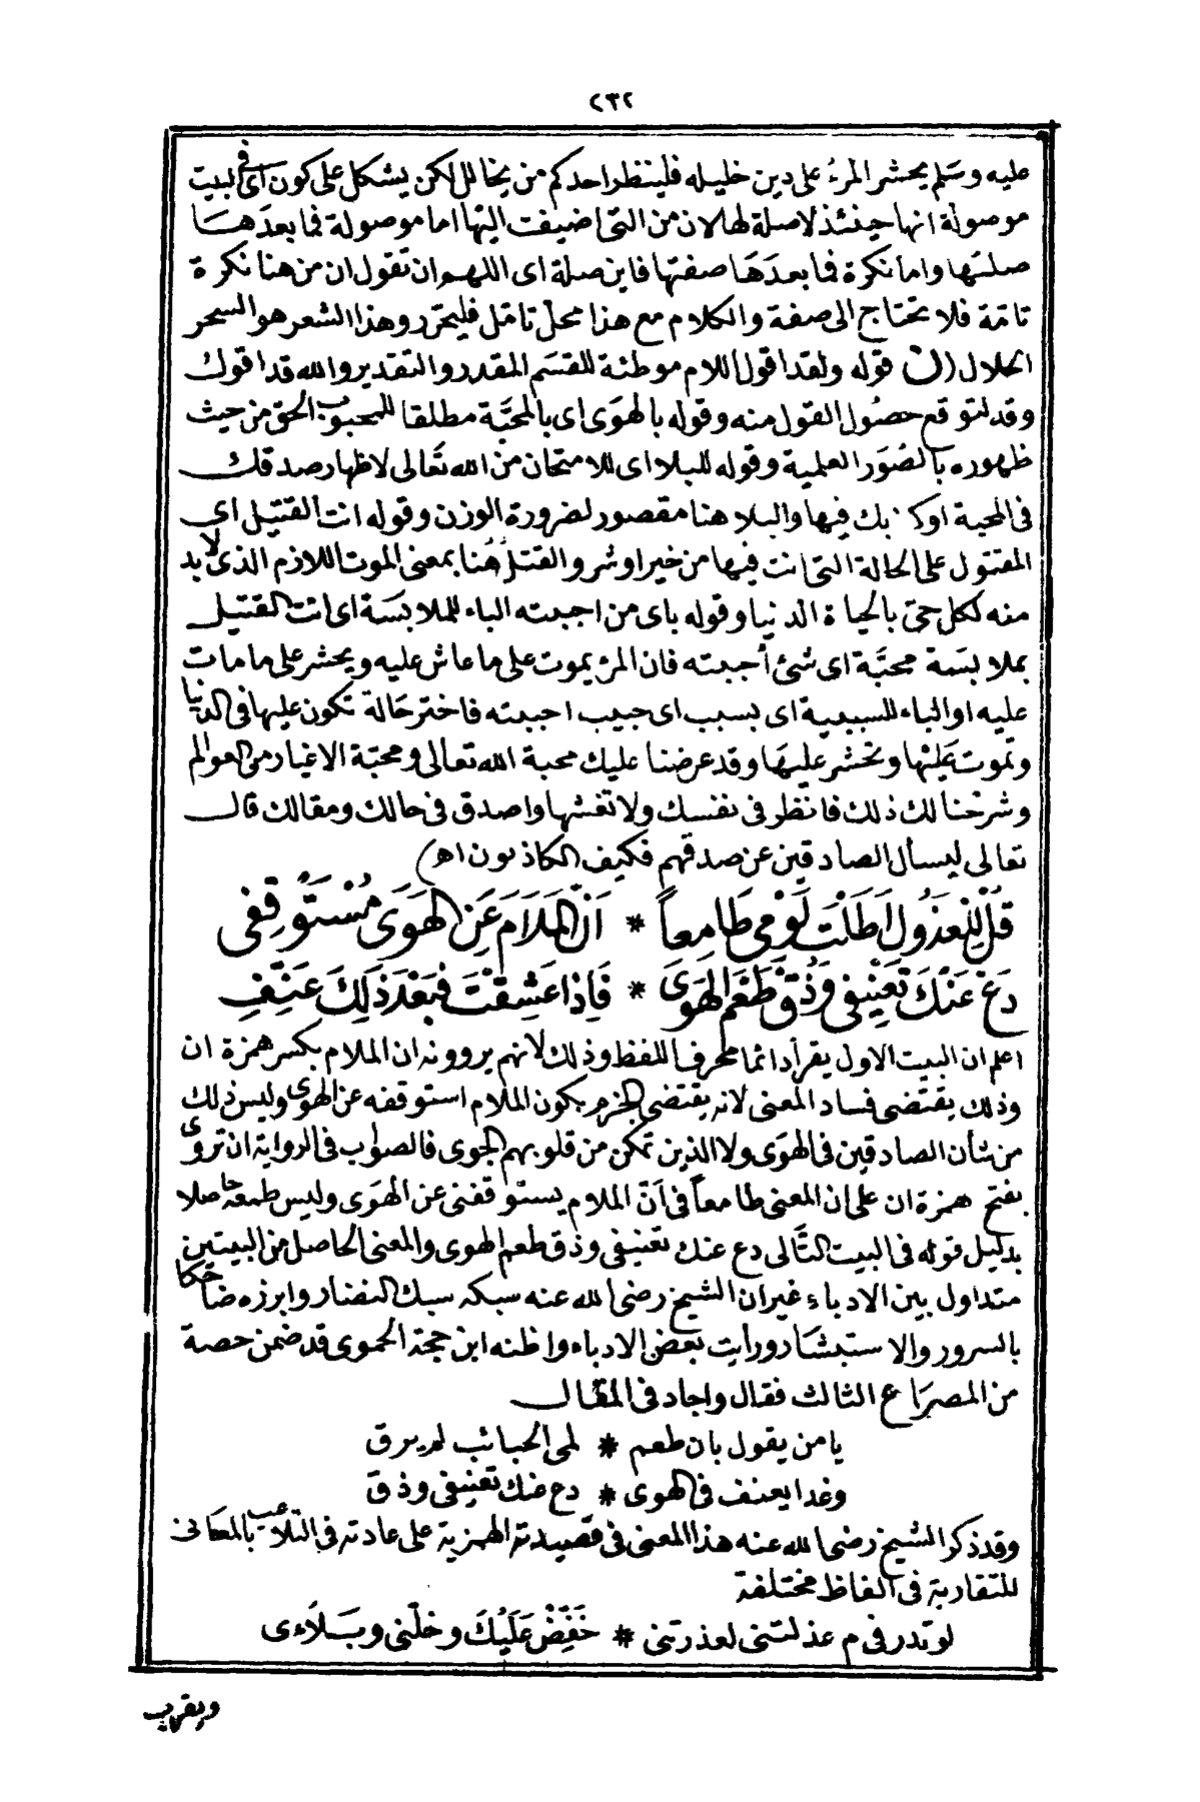 ٢٣٢
عليه وسلم يحشر المرء على دين خليله فلينظر احدكم من يخالل لكن يشكل على كون اى فى البيت
موصولة انها حينئذ لا صلة لها لان من التى اضيفت اليها اما موصولة فما بعدها
صلتها واما نكرة فما بعدها صفتها فاين صلة اى اللهم ان تقول ان من هنا نكرة
تامة فلا تحتاج الى صفة والكلام مع هذا محل تامّل فليحرّر وهذا الشعر هو السحر
الحلال (ن قوله ولقد اقول اللام موطئة للقسم المقدر والتقدير والله قد اقول
وقد لتوقع حصول القول منه وقوله بالهوى اى بالمحبّة مطلقا للمحبوب الحق من حيث
ظهوره بالصُوَر العلمية وقوله للبلا اى للامتحان من الله تعالى لاظهار صدقك
فى المحبة او كذبك فيها والبلا هنا مقصور لضرورة الوزن وقوله انت القتيل اى
المقتول على الحالة التى انت فيها من خير او شر والقتل هُنا بمعنى الموت اللازم الذى لا بد
منه لكل حىّ بالحياة الدنيا وقوله باى من احببته الباء للملابسَة اى انت القتيل
بملابسَة محبَّة اى شئ أحببته فان المرء يموت على ما عاش عليه ويحشر على ما مات
عليه او الباء للسببية اى بسبب اى حبيب احببته فاختر حَالة تكون عليها فى الدنيا
وتموت عَليْها وتحشر عليهَا وقد عرضنا عليك محبة الله تعالى ومحبّة الاغيار من العوالم
وشرحنا لك ذلك فانظر فى نفسك ولا تغشها واصدق فى حالك ومقالك قال
تعالى ليسأل الصادقين عن صدقهم فكيف الكاذبون اه)
قُلْ لِلْعَذُولِ أَطَلْتَ لَوْمِى طَامِعاً * اَنَّ المَلاَمَ عَنِ الهَوَى مُسْتَوْقِفِى
دَعْ عَنْكَ تَعْنِيفِى وَذُقْ طَعْمَ الهَوَى * فَاِذَا عَشِقْتَ فَبَعْدَ ذَلِكَ عَنِّفِ
اعلم ان البيت الاول يقرأ دائما محرف اللفظ وذلك لانهم يروونه ان الملام بكسر همزة ان
وذلك يقتضى فساد المعنى لانه يقتضى الجزم بكون الملام استوقفه عن الهوى وليس ذلك
من شأن الصادقين فى الهوَى ولا الذين تمكن من قلوبهم الجوى فالصواب فى الرواية ان تروى
بفتح همزة ان على ان المعنى طامعاً فى اَنّ الملام يستوقفنى عن الهَوَى وليس طمعه حاصلا
بدليل قوله فى البيت التَّالى دع عنك تعنيفى وذق طعم الهوى والمعنى الحاصل من البيتين
متداول بين الادباء غير ان الشيخ رضى الله عنه سبكه سبك النضار وابرزه ضاحكا
بالسرور والاستبشار ورايت بعض الادباء واظنه ابن حجة الحموى قد ضمن حصة
من المصرَاع الثالث فقال واجاد فى المقال
يا من يقول بان طعم * لمى الحبائب لم يرق
وغدا يعنف فى الهوى * دع عنك تعنيفى وذق
وقد ذكر الشيخ رضى الله عنه هذا المعنى فى قصيدته الهمزية على عادته فى التلاعب بالمعانى
للتقاربة فى الفاظ مختلفة
لو تدر فيم عذلتنى لعذرتنى * خَفِّضْ عَلَيْكَ وخلّنى وبَلَاءى
ويقرب